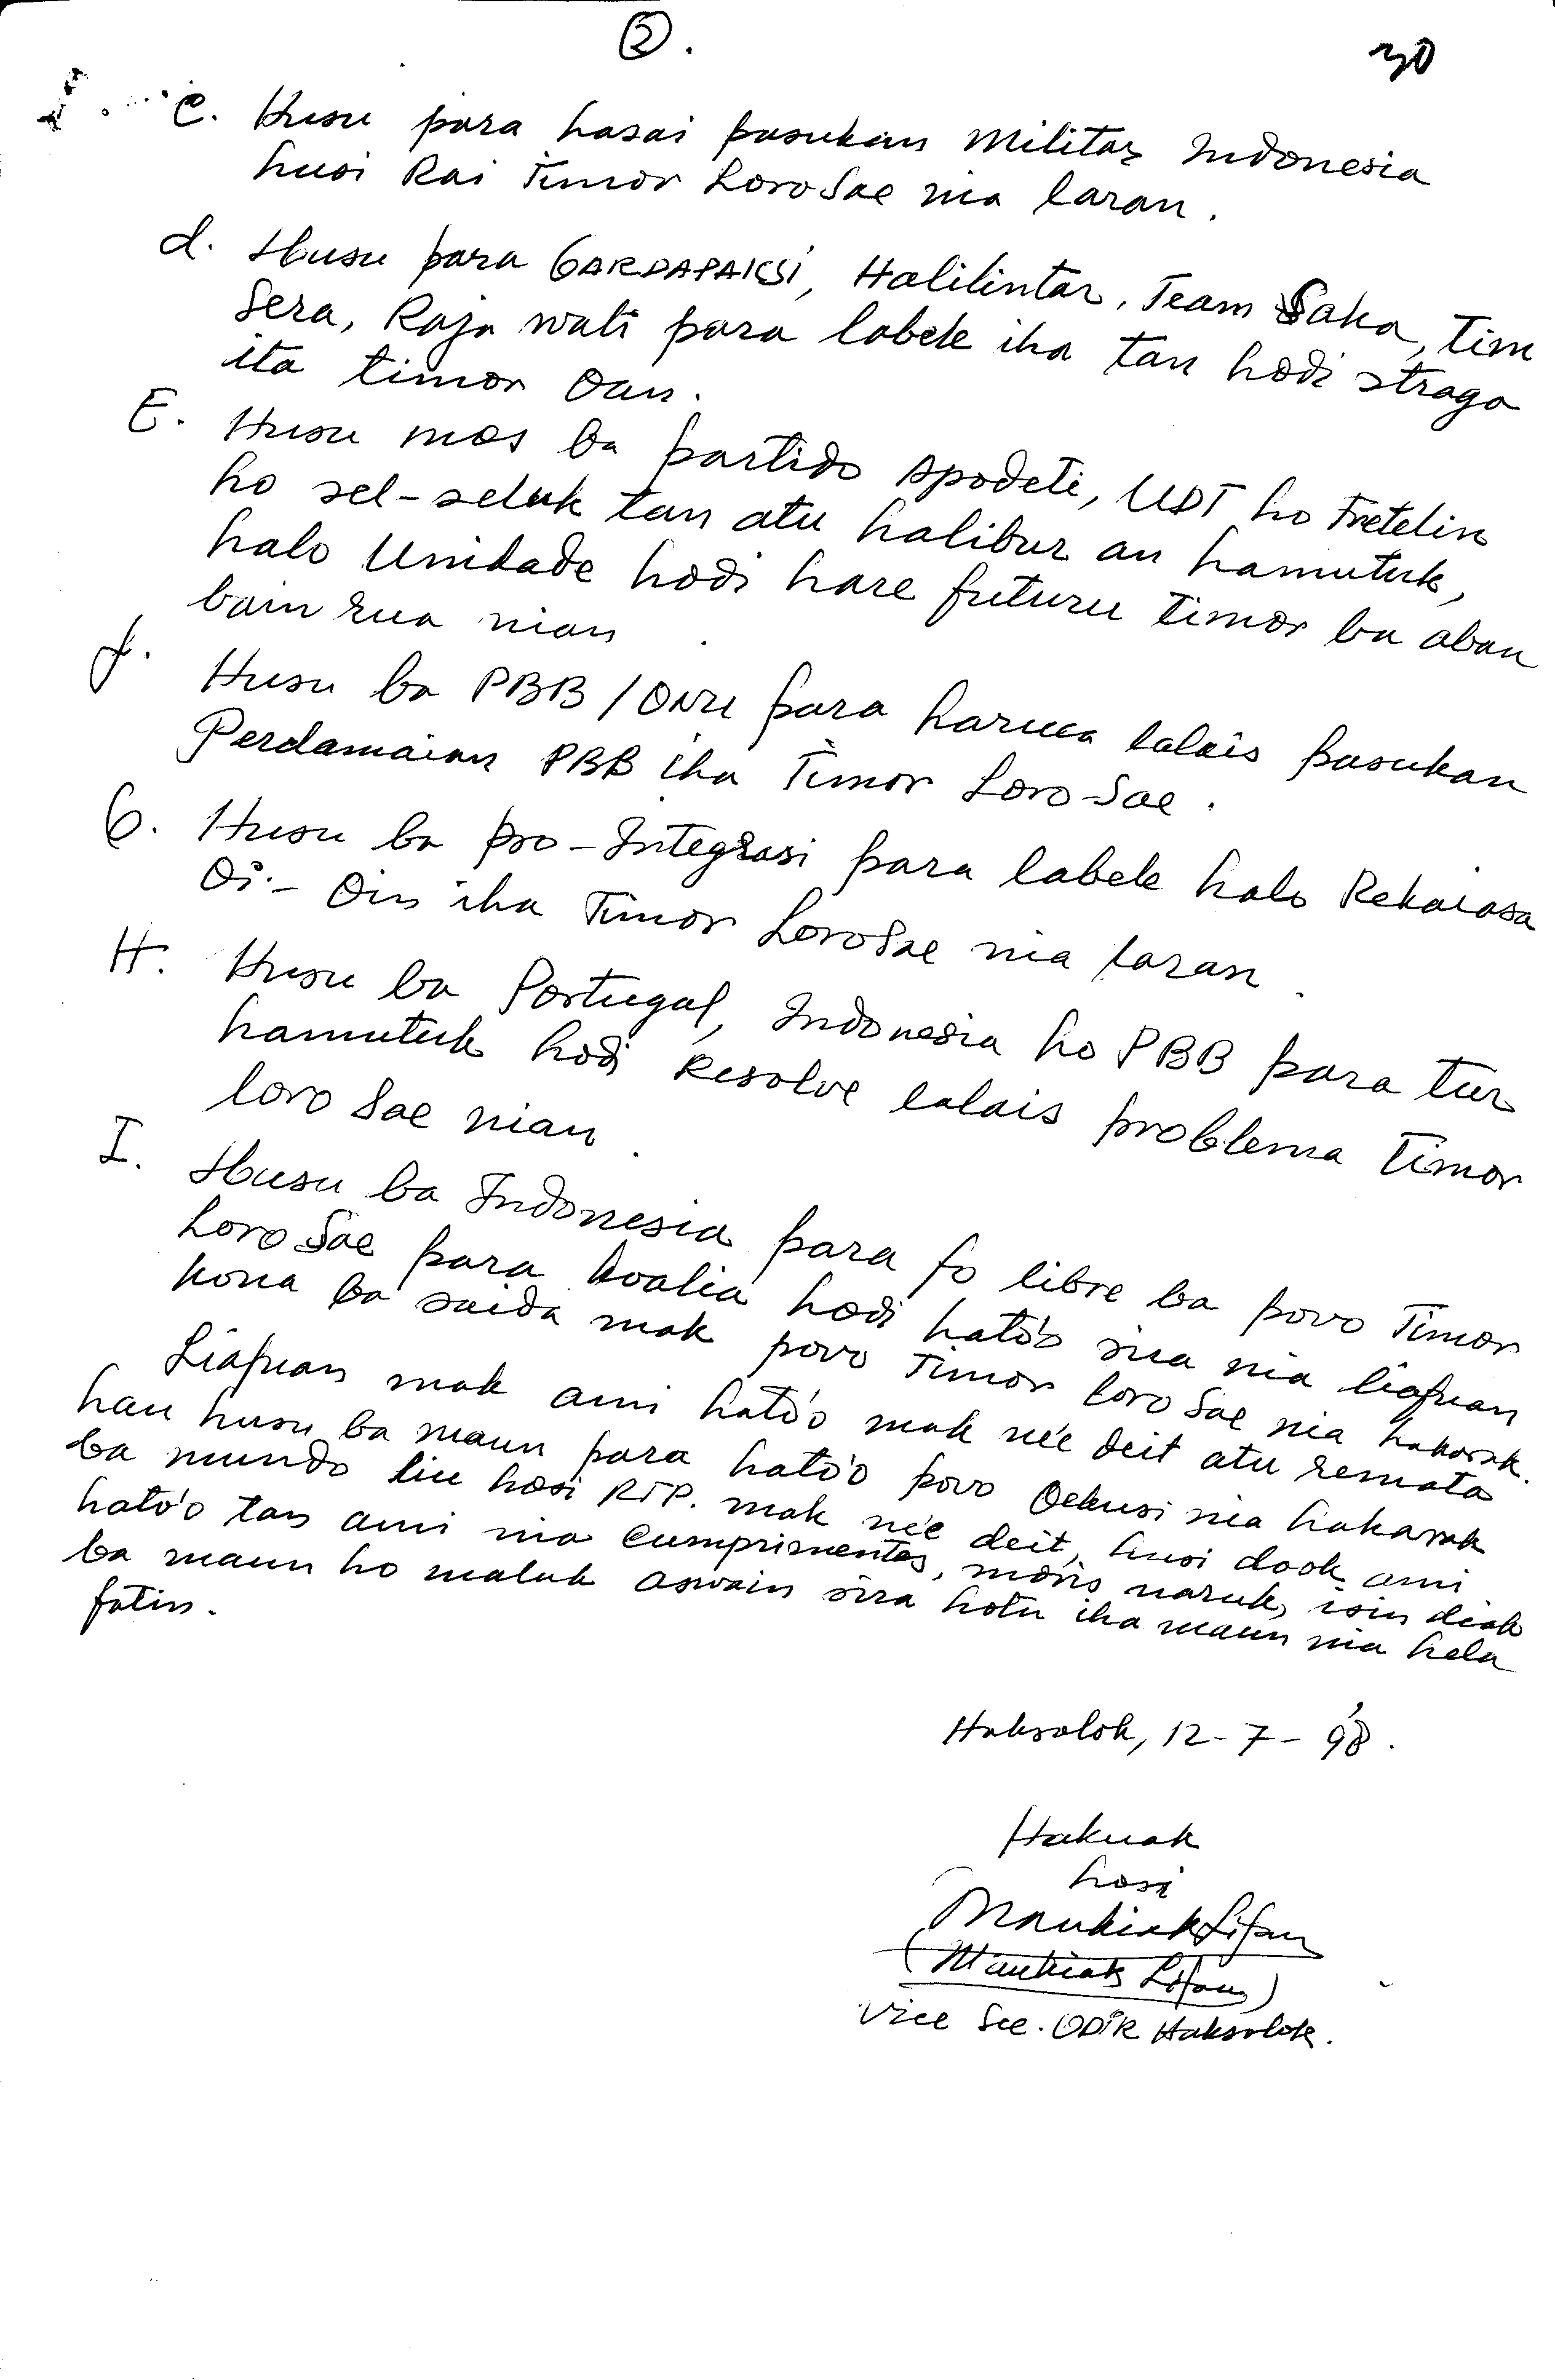 2.
30
C. Husu para hasai pasukan Militar Indonesia
husi Rai Timor LoroSae nia laran.
d. Husu para GARDAPAKSI, Halilintar, Team Saka, Tim
Sera, Raja wali para labele iha tan hodi straga
ita timor Oan.
E. Husu mos ba partido Apodeti, UDT ho Fretelin
ho sel-seluk tan atu halibur an hamutuk,
halo Unidade hodi hare futuru timor ba aban
bain rua nian.
f. Husu ba PBB/ONU para haruca lalais pasukan
Perdamaian PBB iha Timor Loro-Sae.
G. Husu ba pro-Integrasi para labele halo Rekaiasa
Oi-Oin iha Timor LoroSae nia laran.
H. Husu ba Portugal, Indonesia ho PBB para tur
hamutuk hodi Resolve lalais problema Timor
loro Sae nian.
I. Husu ba Indonesia para fo libre ba povo Timor
Loro Sae para koalia hodi hato'o sira nia liafuan
kona ba saida mak povo Timor loro Sae nia hakarak.
Liafuan mak ami hato'o mak ne'e deit atu remata
hau husu ba maun para hato'o povo Oekusi nia hakarak
ba mundo liu hosi RTP. mak ne'e deit, husi dook ami
hato'o tan ami nia Cumprimentos, moris naruk, isin diak
ba maun ho maluk aswain sira hotu iha maun nia hela
fatin.
Haksolok, 12-7-'98.
Hakuak
hosi
Maukiak Lifau
(Maukiak Lifau)
Vice Sec. ODIR Haksolok.